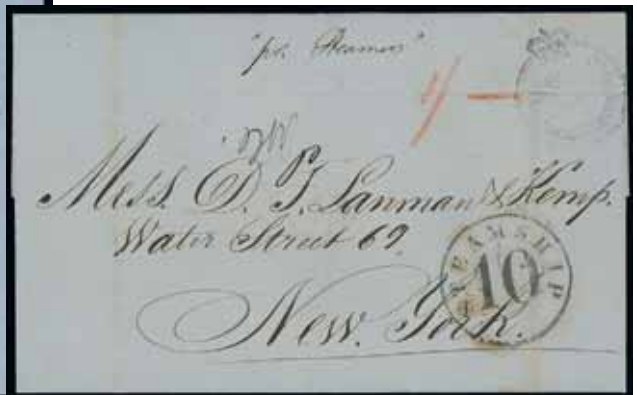 "pr. Steamer"
1/—
Mess. D. T. Lanman & Kemp.
Water Street 69.
New York.
STEAMSHIP
10